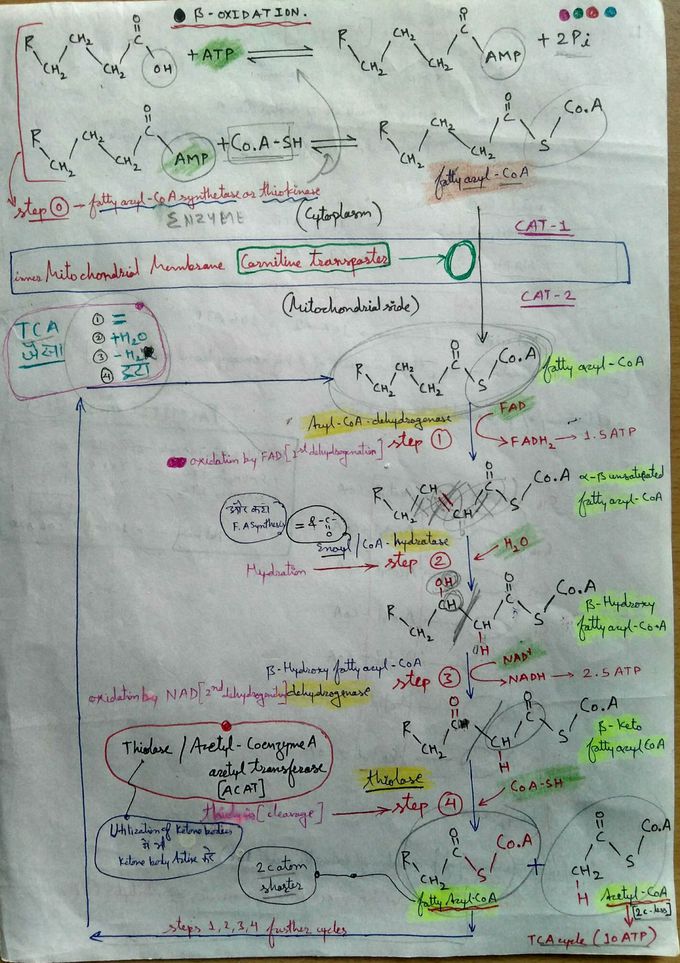 β-OXIDATION.
R CH₂ CH₂ CH₂ C O OH + ATP ⇌ R CH₂ CH₂ CH₂ C O AMP + 2Pi
R CH₂ CH₂ CH₂ C O AMP + Co.A-SH ⇌ R CH₂ CH₂ CH₂ C O S Co.A
fatty acyl-CoA
step ⓪ - fatty acyl-CoA synthetase or thiokinase
ENZYME
(Cytoplasm)
CAT-1
inner Mitochondrial Membrane Carnitine transporter
CAT-2
(Mitochondrial side)
TCA
जैसा
① =
② +H₂O
③ -H₂
④ टूटा
R CH₂ CH₂ CH₂ C O S Co.A
fatty acyl-CoA
Acyl-CoA-dehydrogenase
step ①
FAD
FADH₂ → 1.5ATP
oxidation by FAD [1st dehydrogenation]
R CH₂ CH CH C O S Co.A
α-β unsaturated
fatty acyl-CoA
F.A Synthesis
= & -C-
O
Enoyl/CoA-hydratase
step ②
H₂O
Hydration
R CH₂ OH CH CH H C O S Co.A
β-Hydroxy
fatty acyl-CoA
β-Hydroxy fatty acyl-CoA
dehydrogenase
step ③
NAD⁺
NADH → 2.5ATP
oxidation by NAD [2nd dehydrogenation]
R CH₂ C O CH H C O S Co.A
β-Keto
fatty acyl CoA
Thiolase / Acetyl-Coenzyme A
acetyl transferase
[ACAT]
thiolase
step ④
CoA-SH
thiolysis [cleavage]
Utilization of Ketone bodies
में भी
Ketone body
2C atom
shorter
R CH₂ C O S Co.A + CH₂ H C O S Co.A
fatty Acyl-CoA
Acetyl-CoA
[2C-less]
steps 1,2,3,4 further cycles
TCA cycle (10ATP)